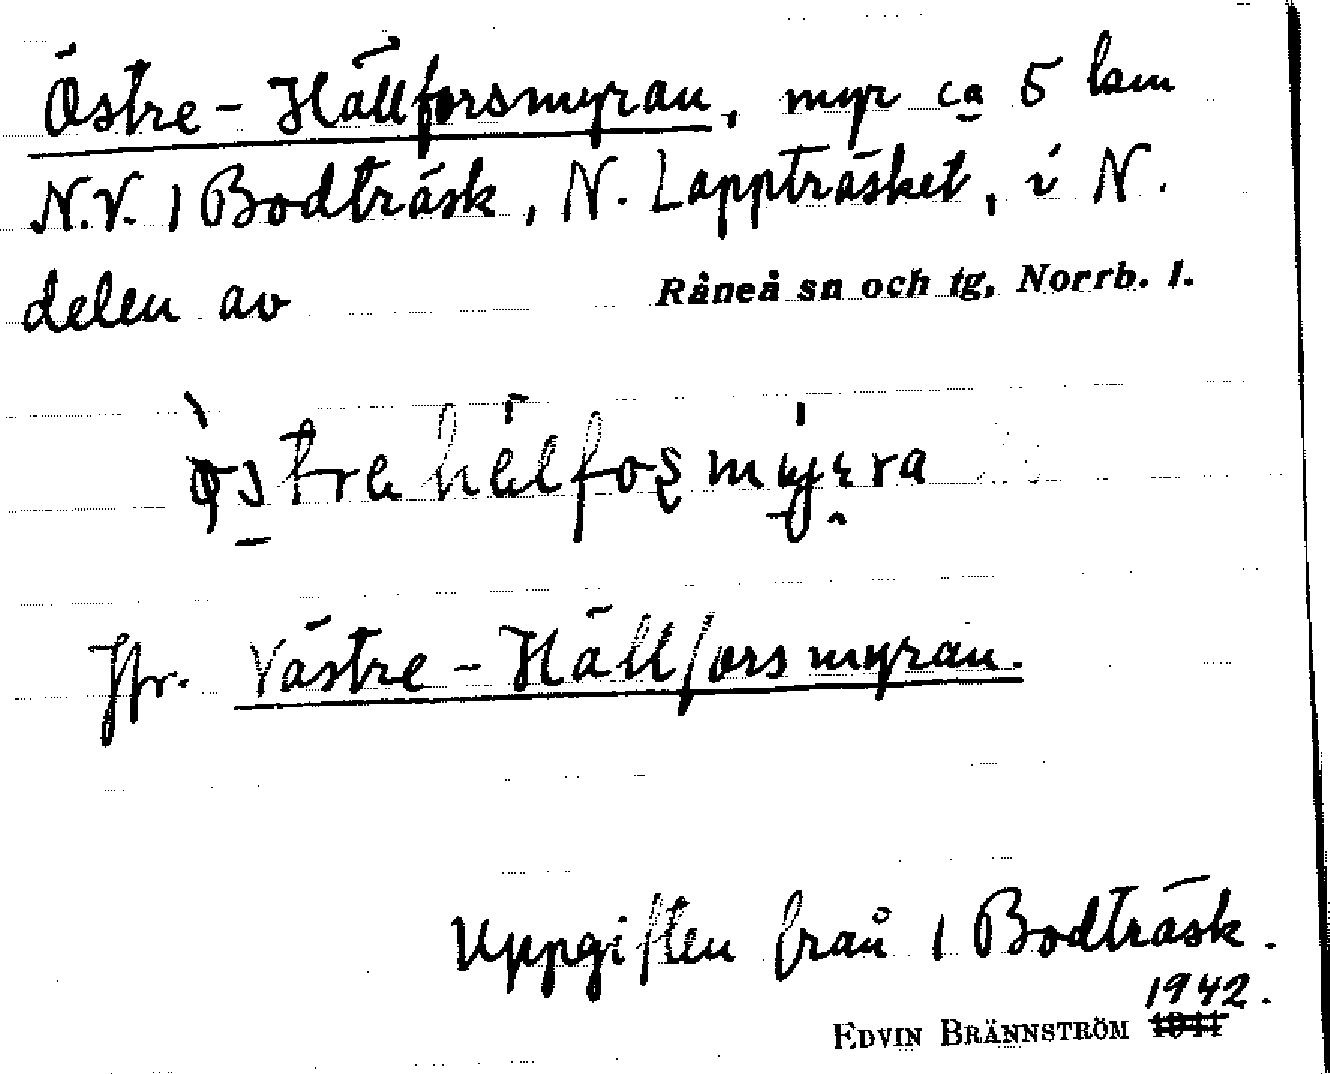 Östre-Hällforsmyran, myr ca 5 km
N.V. 1 Bodträsk, N. Lappträsket, i N.
delen av Råneå sn och tg, Norrb. l.
Jfr. Västre-Hällforsmyran.
Uppgiften från 1 Bodträsk.
1942.
EDVIN BRÄNNSTRÖM 1941